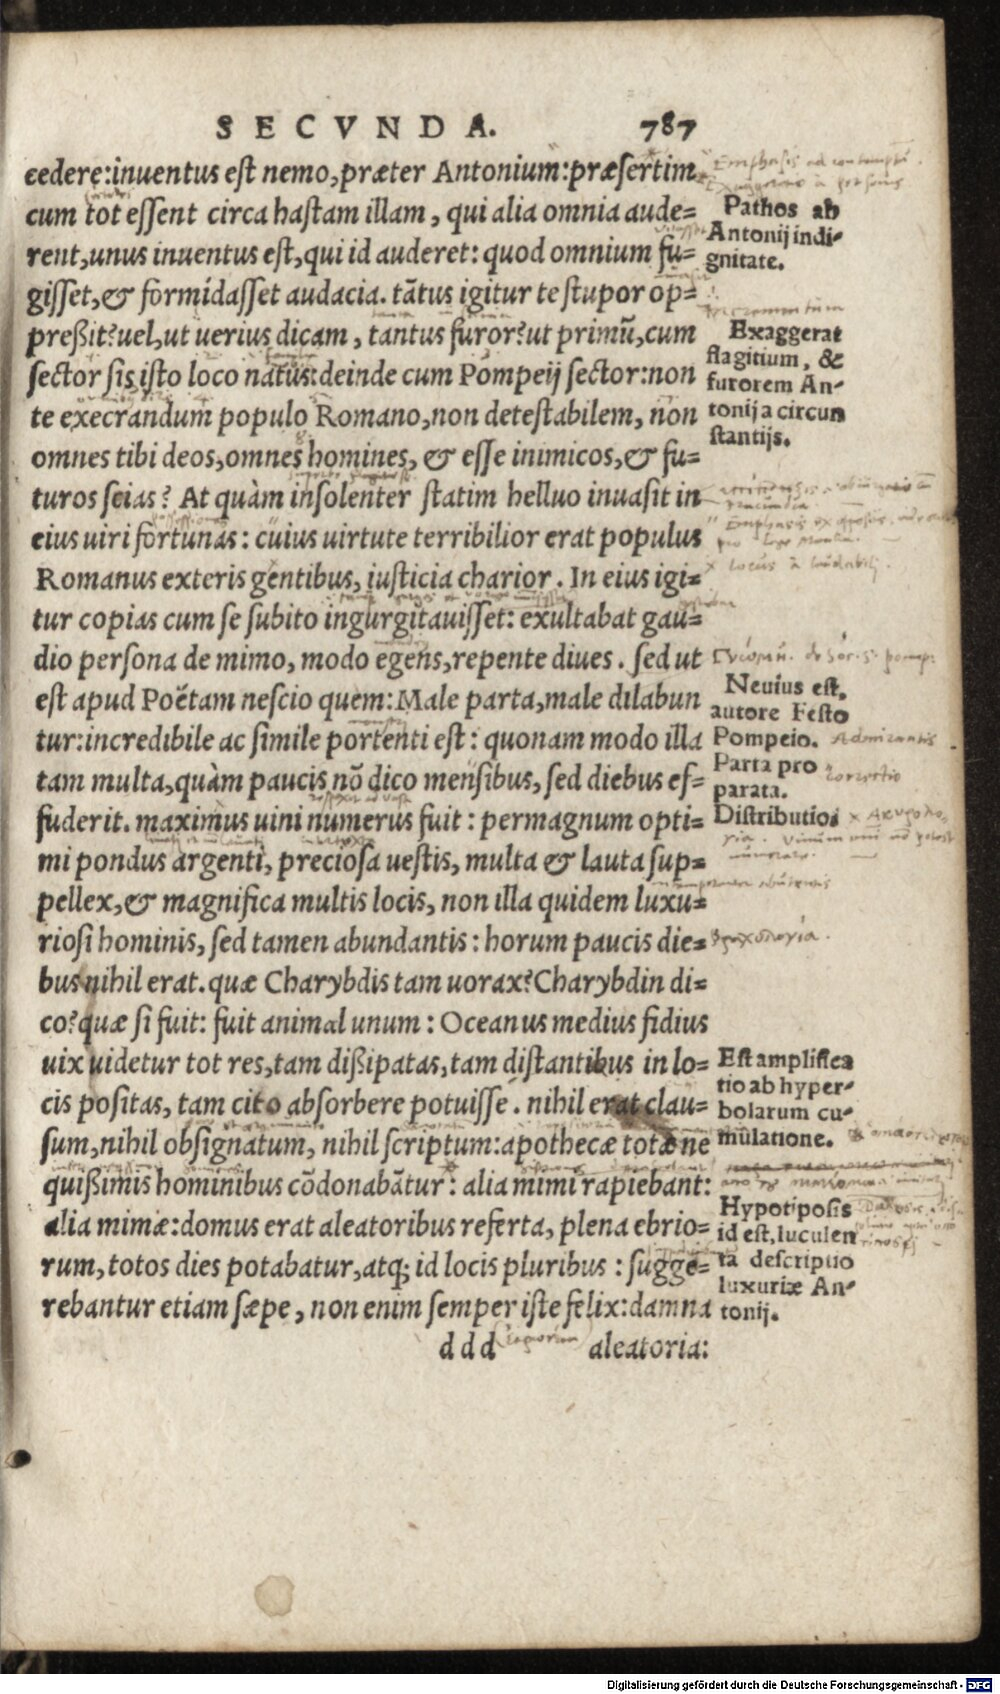 SECVNDA. 787
cedere:inuentus est nemo,præter Antonium:præsertim
cum tot essent circa hastam illam, qui alia omnia aude=
rent,unus inuentus est,qui id auderet: quod omnium fu=
gisset,& formidasset audacia. tātus igitur te stupor op=
preßit?uel,ut uerius dicam, tantus furor?ut primū,cum
sector sis isto loco natus:deinde cum Pompeij sector:non
te execrandum populo Romano,non detestabilem, non
omnes tibi deos,omnes homines, & esse inimicos,& fu=
turos scias? At quàm insolenter statim helluo inuasit in
eius uiri fortunas: cuius uirtute terribilior erat populus
Romanus exteris gentibus, iusticia charior. In eius igi=
tur copias cum se subito ingurgitauisset: exultabat gau=
dio persona de mimo, modo egens,repente diues. sed ut
est apud Poëtam nescio quem:Male parta,male dilabun
tur:incredibile ac simile portenti est: quonam modo illa
tam multa,quàm paucis nō dico mensibus, sed diebus ef=
fuderit. maximus uini numerus fuit: permagnum opti=
mi pondus argenti, preciosa uestis, multa & lauta sup=
pellex,& magnifica multis locis, non illa quidem luxu=
riosi hominis, sed tamen abundantis: horum paucis die=
bus nihil erat. quæ Charybdis tam uorax?Charybdin di=
co?quæ si fuit: fuit animal unum: Oceanus medius fidius
uix uidetur tot res,tam dißipatas,tam distantibus in lo=
cis positas, tam cito absorbere potuisse. nihil erat clau=
sum,nihil obsignatum, nihil scriptum:apothecæ totæ ne
quißimis hominibus cōdonabātur: alia mimi rapiebant:
alia mimæ:domus erat aleatoribus referta, plena ebrio=
rum,totos dies potabatur,atq; id locis pluribus: sugge=
rebantur etiam sæpe, non enim semper iste felix:damna
ddd aleatoria:
Pathos ab
Antonij indi-
gnitate.
Exaggerat
flagitium, &
furorem An-
tonij a circun
stantijs.
Nevius est,
autore Festo
Pompeio.
Admirantis
Parta pro
parata.
correctio
Distributio
Est amplifica
tio ab hyper-
bolarum cu-
mulatione.
Hypotiposis
id est, luculen
ta descriptio
luxuriæ An-
tonij.
Digitalisierung gefördert durch die Deutsche Forschungsgemeinschaft - DFG